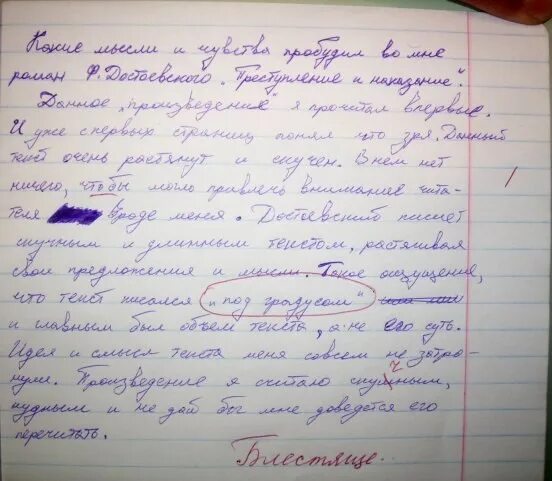 Какие мысли и чувства пробудил во мне
роман Ф. Достоевского „Преступление и наказание".
Данное „произведение" я прочитал впервые.
И уже с первых страниц понял что зря. Данный
текст очень растянут и скучен. В нем нет
ничего, чтобы могло привлечь внимание чита-
теля вроде меня. Достоевский пишет
скучным и длинным текстом, растягивая
свои предложения и мысли. Такое ощущение,
что текст писался „под градусом"
и главным был объем текста, а не его суть.
Идея и смысл текста меня совсем не затро-
нули. Произведение я считаю скучным,
ч
нудным и не дай бог мне доведется его
перечитать.
Блестяще.